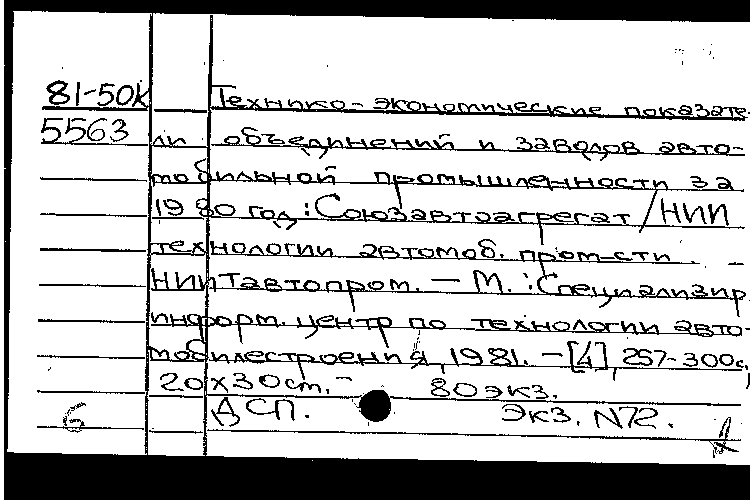 81-50К Технико-экономические показате-
5563 ли объединений и заводов авто-
мобильной промышленности за
1980 год : Союзавтоагрегат / НИИ
технологии автомоб. пром-сти. -
НИИТавтопром. - М. : Специализир.
информ. центр по технологии авто-
мобилестроения, 1981. - [4], 257-300с.,
20х30см. - 80экз.
6 ДСП. Экз. N72.